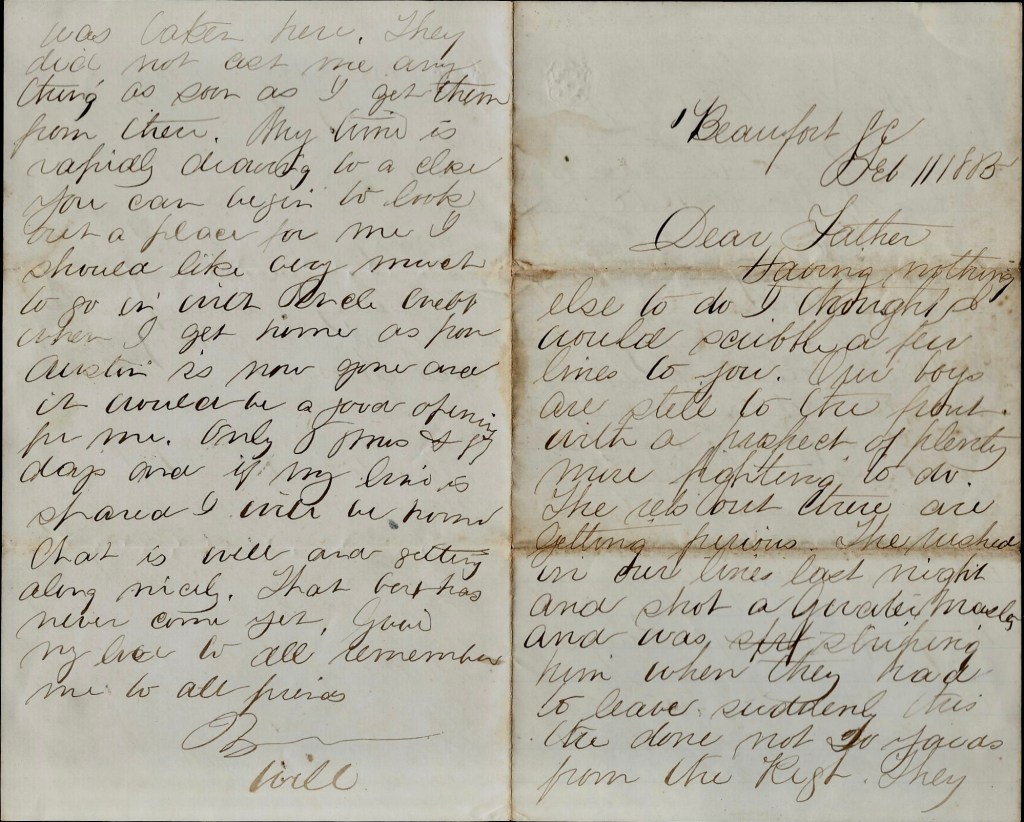 Beaufort SC
Feb 11 1863
Dear Father
Having nothing
else to do I thought I
would scribble a few
lines to you. Our boys
are still to the front.
with a prospect of plenty
more fighting to do.
The rebs out there are
getting furious. The rushed
in our lines last night
and shot a
and was striping
him when they had
to leave suddenly this
the done not 20 yards
from the Regt. They
was taken here. They
did not ast me any
thing as soon as I get them
from then. My time is
rapidly drawing to a close
You can begin to look
out a place for me I
should like very much
to go in with Uncle Webb
when I get home as poor
Austin is now gone and
it would be a good opening
for me. Only 8 mos &
days and if my life is
spared I will be home
Chat is well and getting
along nicely. That box has
never come yet. Give
my love to all remember
me to all friends
Will